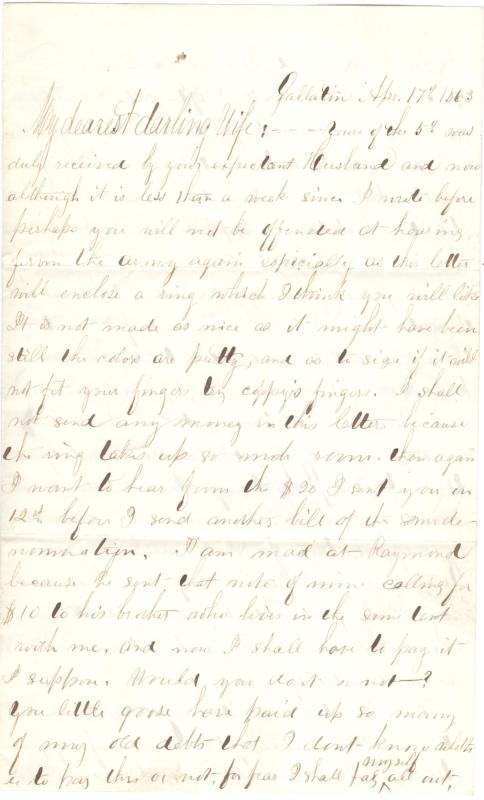 Gallatin Apr. 17th 1863
My dearest darling Wife; - - - - Yours of the 5th was
duly received by your expectant Husband and now
although it is less than a week since I wrote before
perhaps you will not be offended at hearing
from the army again especially as this letter
will enclose a ring which I think you will like
It is not made as nice as it might have been
still the colors are pretty, and as to size if it will
not fit your fingers try coppy's fingers. I shall
not send any money in this letter because
the ring takes up so much room. then again
I want to hear from the $20 I sent you on
12th before I send another bill of the same de-
nomination. I am mad at Raymond
because he sent that note of mine calling for
$10 to his brother who lives in the same tent
with me, and now I shall have to pay it
I suppose. Would you do it or not?
You little goose have paid up so many
of my old debts that I dont know whether
to pay this or not, for fear I shall pay myself all out.